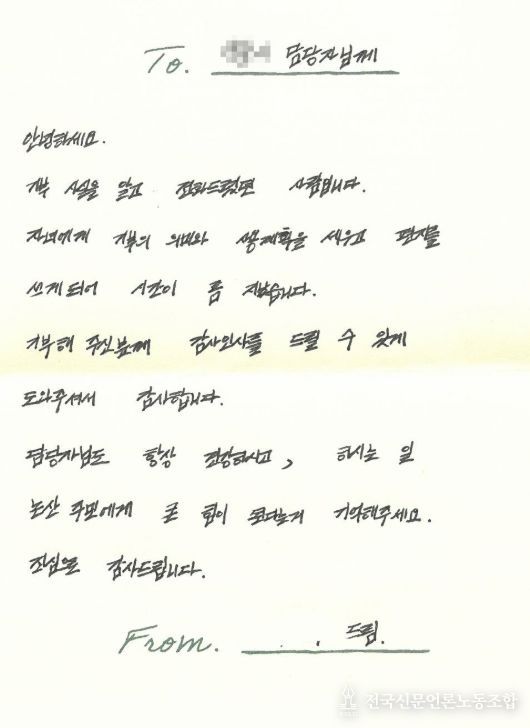 To. 담당자님께
안녕하세요.
기부 사실을 알고 전화드렸던 사람입니다.
자녀에게 기부의 의미와 사용계획을 세우고 편지를
쓰게되어 시간이 좀 지났습니다.
기부해 주신분께 감사인사를 드릴 수 있게
도와주셔서 감사합니다.
담당자님도 항상 건강하시고, 하시는 일
논산 주민에게 큰 힘이 된다는거 기억해주세요.
진심으로 감사드립니다.
From. 드림.
전국신문언론노동조합